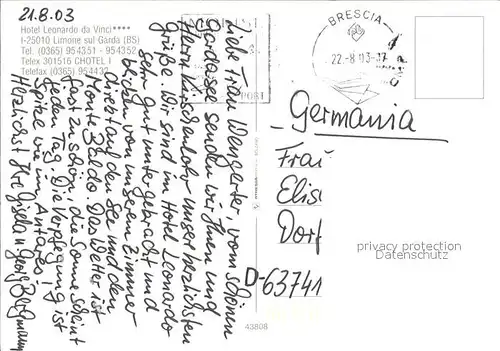 21.8.03
Hotel Leonardo da Vinci****
I-25010 Limone sul Garda (BS)
Tel. (0365) 954351 - 954352
Telex 301516 CHOTEL I
Telefax (0365) 954432
Liebe Frau Wengerter, vom schönen
Gardasee senden wir Ihnen und
Herrn Kirschenlohr unsere herzlichsten
Grüße. Wir sind im Hotel Leonardo
sehr gut untergebracht und
blicken von unserem Zimmer
direkt auf den See und den
Monte Baldo. Das Wetter ist
fast zu schön, die Sonne scheint
jeden Tag. Die Verpflegung ist
Spitze wie im Antares!
Herzlichst Ihre Gisela u Georg
BRESCIA
22-8 03-17
Germania
Frau
Elis
Dorf
D-63741
privacy protection
Datenschutz
43808